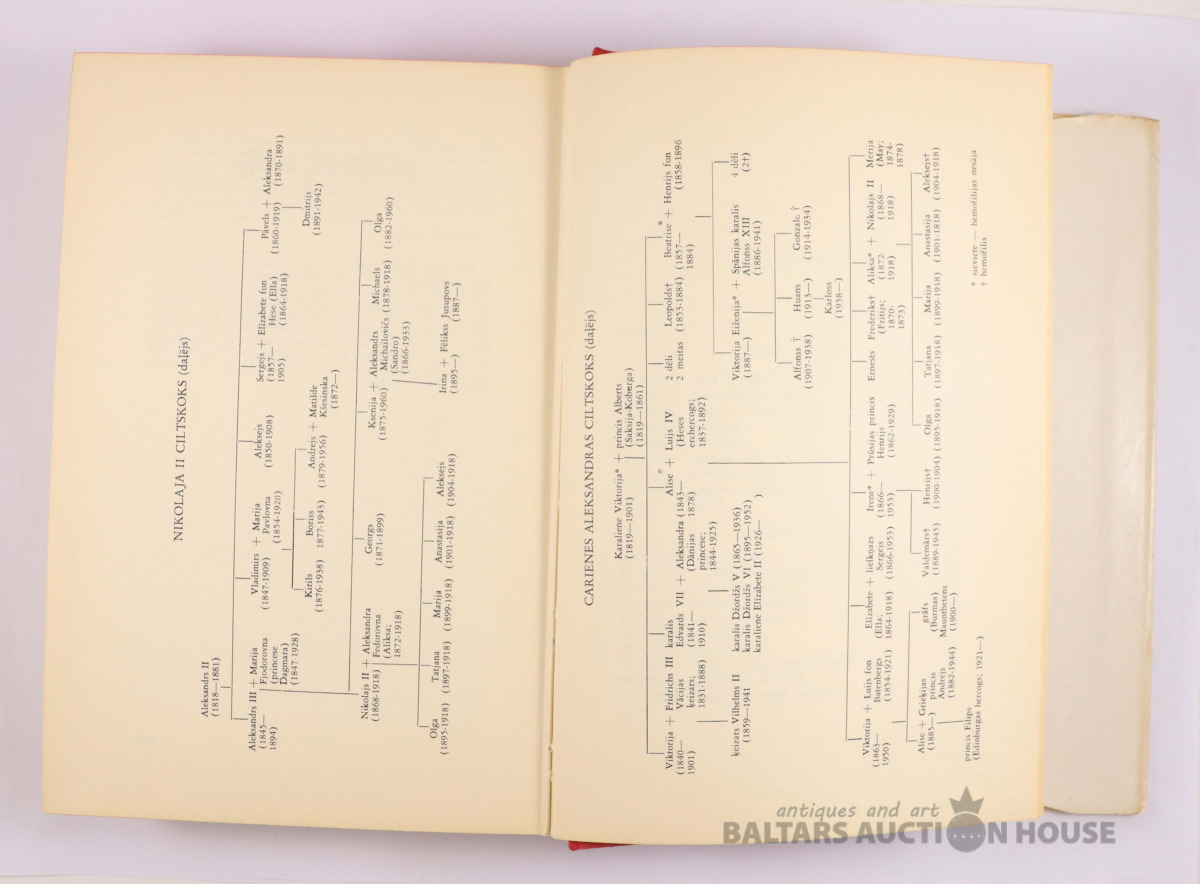 NIKOLAJA II CILTSKOKS (daļējs)
Aleksandrs II
(1818—1881)
Aleksandrs III + Marija
(1845— Fjodorovna
1894) (princese
Dagmara)
(1847-1928)
Vladimirs + Marija
(1847-1909) Pavlovna
(1854-1920)
Aleksejs
(1850-1908)
Sergejs + Elizabete fon
(1857— Hese (Ella)
1905) (1864-1918)
Pāvels + Aleksandra
(1860-1919) (1870-1891)
Kirils
(1876-1938)
Boriss
1877-1943)
Andrejs + Matilde
(1879-1956) Kšesinska
(1872—)
Dmitrijs
(1891-1942)
Nikolajs II + Aleksandra
(1868-1918) Fedorovna
(Aliksa;
1872-1918)
Georgs
(1871-1899)
Ksenija + Aleksandrs
(1875-1960) Michailovičs
(Sandro)
(1866-1933)
Michaels
(1878-1918)
Olga
(1882-1960)
Olga
(1895-1918)
Tatjana
(1897-1918)
Marija
(1899-1918)
Anastasija
(1901-1918)
Aleksejs
(1904-1918)
Irina + Fēlikss Jusupovs
(1895—) (1887—)
CARIENES ALEKSANDRAS CILTSKOKS (daļējs)
Karaliene Viktorija* + princis Alberts
(1819—1901) (Saksija-Koburga)
(1819—1861)
Viktorija + Fridrichs III
(1840— Vācijas
1901) ķeizars;
1831-1888)
karalis
Edvards VII + Aleksandra
(1841— (Dānijas
1910) princese;
1844-1925)
*
Alise + Luijs IV
(1843— (Heses
1878) erchercogs;
1837-1892)
2 dēli
2 meitas
Leopolds†
(1853-1884)
*
Beatrise + Henrijs fon
(1857— (1858-1896
1884)
ķeizars Vilhelms II
(1859—1941
karalis Džordžs V (1865—1936)
karalis Džordžs VI (1895—1952)
karaliene Elizabete II (1926— )
Viktorija Eiženija* + Spānijas karalis
(1887—) Alfonss XIII
(1886-1941)
4 dēli
(2†)
Alfonss †
(1907-1938)
Huans
(1913—)
Gonzalc †
(1914-1934)
Karloss
(1938—)
Viktorija + Luijs fon
(1863— Batenbergs
1950) (1854-1921)
Elizabete + lielkņazs
(Ella; Sergejs
1864-1918) (1866-1953)
Irene* + Prūsijas princis
(1866— Henrijs
1953) (1862-1929)
Ernests
Frederiks†
(Fritijs;
1870-
1873)
Aliksa* + Nikolajs II
(1872- (1868—
1918) 1918)
Merija
(May;
1874-
1878)
Alise + Grieķijas
(1885—) princis
Andrejs
(1882-1944)
grāfs
(Burmas)
Mauntbetens
(1900—)
Valdemārs†
(1889-1945)
Henrijs†
(1900-1904)
Olga
(1895-1918)
Tatjana
(1897-1918)
Marija
(1899-1918)
Anastasija
(1901-1818)
Aleksejs†
(1904-1918)
princis Filips
(Edinburgas hercogs; 1921—)
* sieviete — hemofilijas nesāja
† hemofilis
antiques and art
BALTARS AUCTION HOUSE